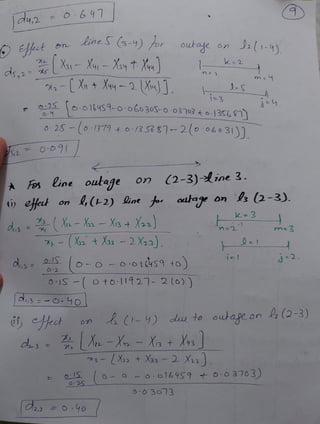 9
d4,2 = 0.647
Effect on line 5 (3-4) for outage on l2 (1-4)
d5,2 = x2/x5 [X31 - X41 - X34 + X44] / x2 - [X11 + X44 - 2(X14)]
k=2
n=1 m=4
l=5
i=3 j=4
= 0.25/0.4 [0.016459 - 0.060305 - 0.03703 + 0.135687] / 0.25 - (0.1379 + 0.135687 - 2(0.06031)]
d5,2 = 0.091
* For line outage on (2-3) → line 3.
(i) effect on l1 (1-2) line for outage on l3 (2-3).
d1,3 = x3/x1 (X12 - X22 - X13 + X23) / x3 - (X22 + X33 - 2X23)
k=3
n=2 m=3
l=1
i=1 j=2
d1,3 = 0.15/0.2 (0 - 0 - 0.016459 + 0) / 0.15 - (0 + 0.11927 - 2(0))
d1,3 = -0.40
(ii) effect on l2 (1-4) due to outage on l3 (2-3)
d2,3 = x3/x2 [X12 - X42 - X13 + X43] / x3 - [X22 + X33 - 2X23]
= 0.15/0.25 (0 - 0 - 0.016459 + 0.03703) / 0.03073
d2,3 = 0.40